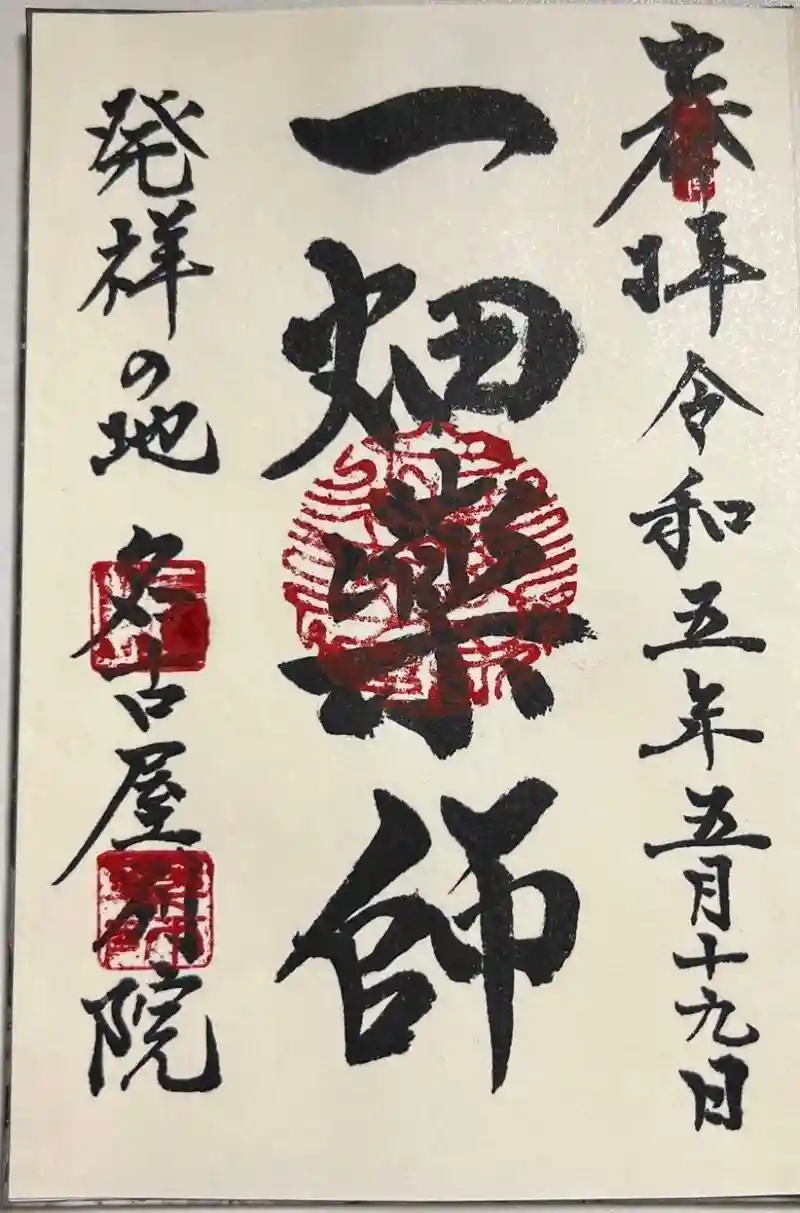 奉拝 令和五年五月十九日
一畑薬師
発祥の地 名古屋別院